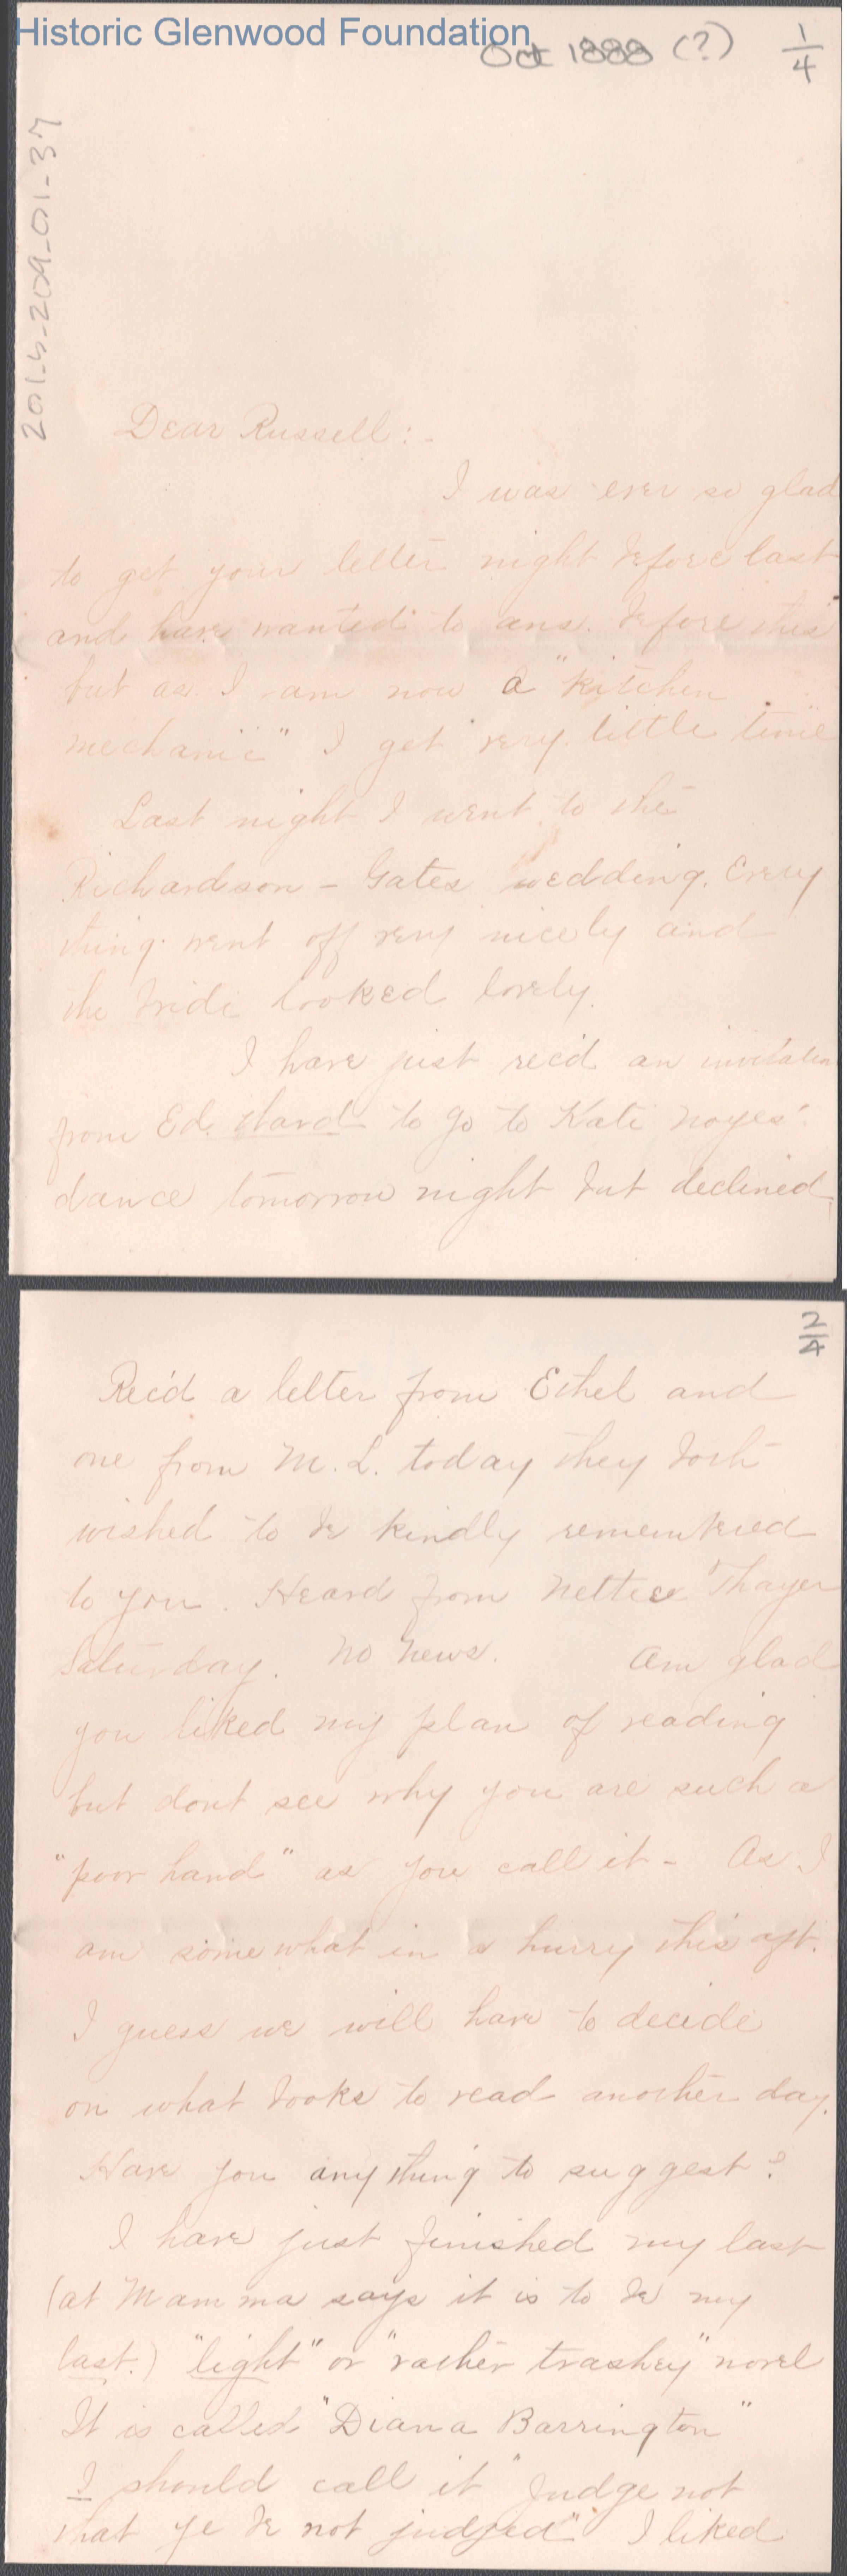 Historic Glenwood Foundation
Oct 1888 (?)
1/4
2015-209-01-37
Dear Russell:-
I was ever so glad
to get your letter night before last
and have wanted to ans. before this
but as I am now a "kitchen
mechanic" I get very little time
Last night I went to the
Richardson - Gates wedding. Every
thing went off very nicely and
the bride looked lovely.
I have just rec'd an invitation
from Ed. Ward to go to Kate Noyes'
dance tomorrow night but declined,
2/4
Rec'd a letter from Ethel and
one from M. L. today they both
wished to be kindly remembered
to you. Heard from Nettie Thayer
Saturday. No news. Am glad
you liked my plan of reading
but dont see why you are such a
"poor hand" as you call it - As I
am somewhat in a hurry this aft.
I guess we will have to decide
on what books to read another day.
Have you any thing to suggest?
I have just finished my last
(at Mamma says it is to be my
last.) "light" or "rather trashey" novel
It is called "Diana Barrington"
I should call it "Judge not
that ye be not judged". I liked